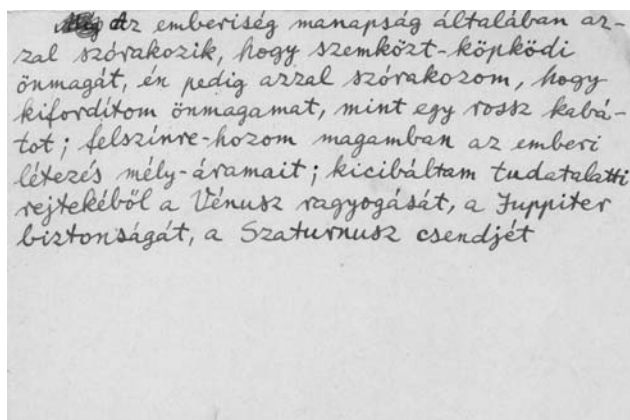 Az emberiség manapság általában az-
zal szórakozik, hogy szemközt-köpködi
önmagát, én pedig azzal szórakozom, hogy
kifordítom önmagamat, mint egy rossz kabá-
tot; felszínre-hozom magamban az emberi
létezés mély-áramait; kicibáltam tudatalatti
rejtekéből a Vénusz ragyogását, a Juppiter
biztonságát, a Szaturnusz csendjét